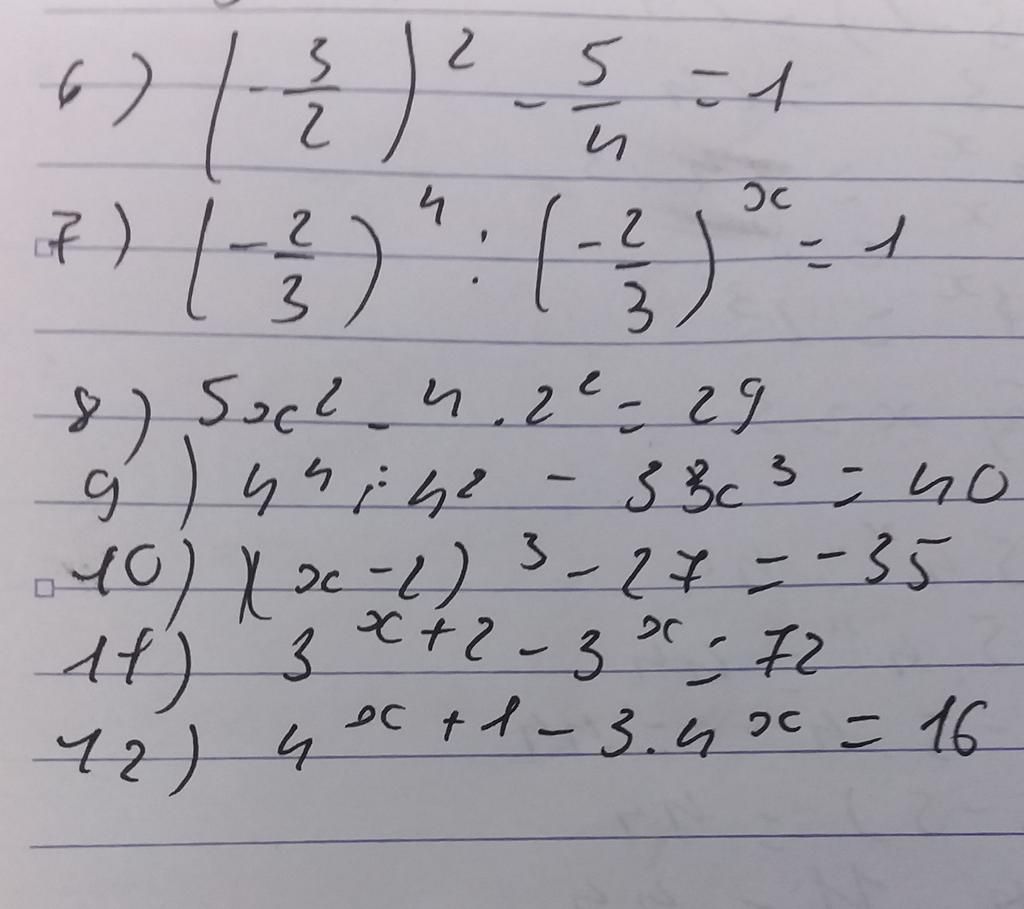 6) (-3/2)² - 5/4 = 1
7) (-2/3)⁴ : (-2/3)ˣ = 1
8) 5x² - 4 . 2² = 29
9) 4⁴ : 4² - 3x³ = 40
10) (x - 2)³ - 27 = -35
11) 3ˣ⁺² - 3ˣ = 72
12) 4ˣ⁺¹ - 3 . 4ˣ = 16